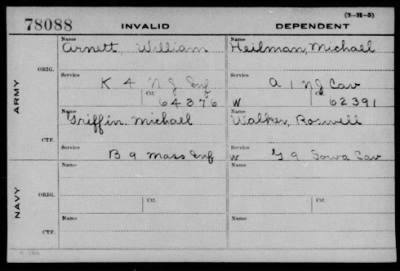 (3-31-5)
78088 INVALID DEPENDENT
ARMY
ORIG.
Name Name
Arnett, William Heilman, Michael
Service Service
K 4 N J Inf A 1 NJ Cav
Ctf. Ctf.
64376 W 62391
CTF.
Name Name
Griffin, Michael Walker, Roswell
Service Service
B 9 Mass Inf W G 9 Iowa Cav
NAVY
ORIG.
Name Ctf. Name Ctf.
CTF.
Name Name